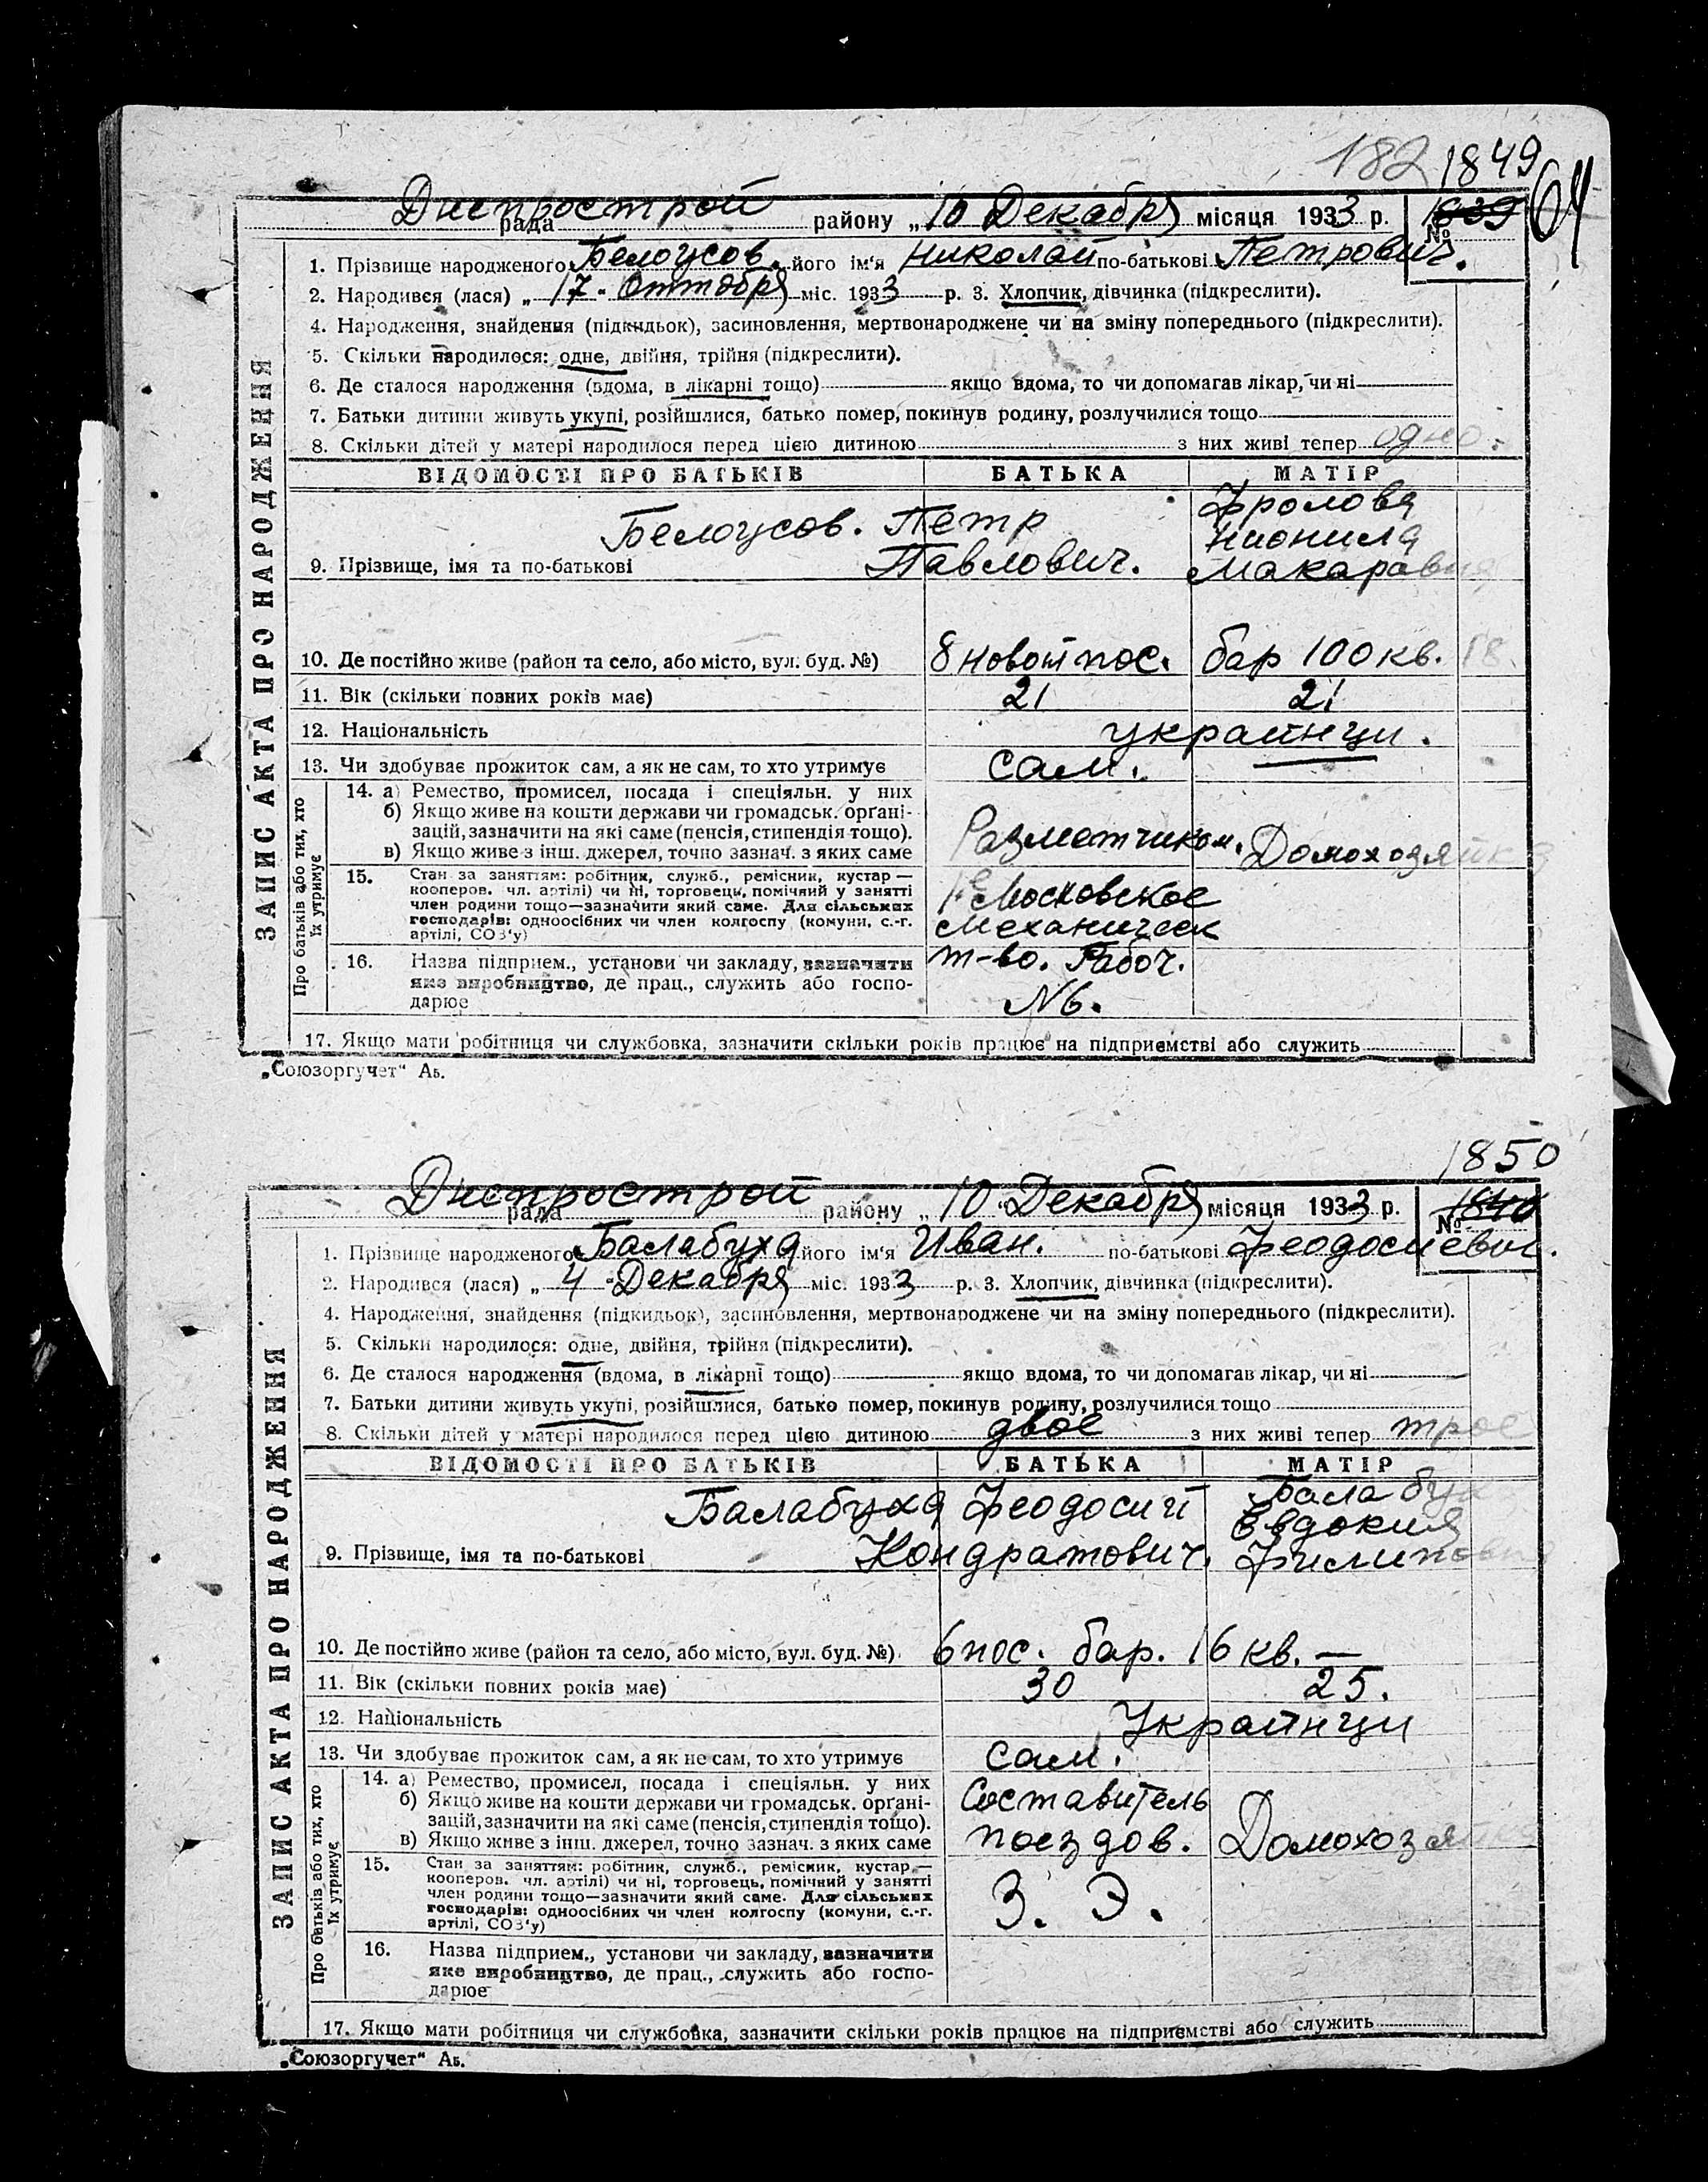 182 1849 64
Днепрострой рада району „10 Декабря місяця 1933 р. № 1839
1. Прізвище народженого Белоусов. його ім‘я Николай по-батькові Петрович.
2. Народився (лася) „17. Октября міс. 1933 р. 3. Хлопчик, дівчинка (підкреслити).
4. Народження, знайдення (підкидьок), засиновлення, мертвонароджене чи на зміну попереднього (підкреслити).
5. Скільки народилося: одне, двійня, трійня (підкреслити).
6. Де сталося народження (вдома, в лікарні тощо) якщо вдома, то чи допомагав лікар, чи ні
7. Батьки дитини живуть укупі, розійшлися, батько помер, покинув родину, розлучилися тощо
8. Скільки дітей у матері народилося перед цією дитиною з них живі тепер одно.
ВІДОМОСТІ ПРО БАТЬКІВ БАТЬКА МАТІР
Белоусов. Петр Фролова
Нионила
9. Прізвище, імя та по-батькові Павлович. Макаровна
10. Де постійно живе (район та село, або місто, вул. буд. №) 8 новой пос. бар 100 кв. 18.
11. Вік (скільки повних років має) 21 21
12. Національність украинци.
13. Чи здобуває прожиток сам, а як не сам, то хто утримує сам.
ЗАПИС АКТА ПРО НАРОДЖЕННЯ
Про батьків або тих, хто
їх утримує
14. а) Ремество, промисел, посада і спеціяльн. у них
б) Якщо живе на кошти держави чи громадськ. орґані-
зацій, зазначити на які саме (пенсія, стипендія тощо).
в) Якщо живе з інш. джерел, точно зазнач. з яких саме
Разметчиком. Домохозяйка
15. Стан за заняттям: робітник, служб., ремісник, кустар—
кооперов. чл. артілі) чи ні, торговець, помічний у занятті
член родини тощо—зазначити який саме. Для сільських
господарів: одноосібних чи член колгоспу (комуни, с.-г.
артілі, СОЗ‘у)
Московское
механическ
16. Назва підприєм., установи чи закладу, зазначити
яке виробництво, де прац., служить або госпо-
дарює
т-во. Рабоч.
N6.
17. Якщо мати робітниця чи службовка, зазначити скільки років працює на підприємстві або служить
„Союзоргучет“ Аь.
1850
Днепрострой рада району „10 Декабря місяця 1933 р. № 1840
1. Прізвище народженого Балабуха його ім‘я Иван. по-батькові Феодосиевич.
2. Народився (лася) „4 Декабря міс. 1933 р. 3. Хлопчик, дівчинка (підкреслити).
4. Народження, знайдення (підкидьок), засиновлення, мертвонароджене чи на зміну попереднього (підкреслити).
5. Скільки народилося: одне, двійня, трійня (підкреслити).
6. Де сталося народження (вдома, в лікарні тощо) якщо вдома, то чи допомагав лікар, чи ні
7. Батьки дитини живуть укупі, розійшлися, батько помер, покинув родину, розлучилися тощо
8. Скільки дітей у матері народилося перед цією дитиною двое з них живі тепер трое
ВІДОМОСТІ ПРО БАТЬКІВ БАТЬКА МАТІР
Балабуха Феодосий Балабуха
Евдокия
9. Прізвище, імя та по-батькові Кондратович. Филиповна
10. Де постійно живе (район та село, або місто, вул. буд. №) 6 пос. бар. 16 кв. —
11. Вік (скільки повних років має) 30 25.
12. Національність Украинци
13. Чи здобуває прожиток сам, а як не сам, то хто утримує сам.
ЗАПИС АКТА ПРО НАРОДЖЕННЯ
Про батьків або тих, хто
їх утримує
14. а) Ремество, промисел, посада і спеціяльн. у них
б) Якщо живе на кошти держави чи громадськ. орґані-
зацій, зазначити на які саме (пенсія, стипендія тощо).
в) Якщо живе з інш. джерел, точно зазнач. з яких саме
Составитель
поездов. Домохозяйка
15. Стан за заняттям: робітник, служб., ремісник, кустар—
кооперов. чл. артілі) чи ні, торговець, помічний у занятті
член родини тощо—зазначити який саме. Для сільських
господарів: одноосібних чи член колгоспу (комуни, с.-г.
артілі, СОЗ‘у)
З. Э.
16. Назва підприєм., установи чи закладу, зазначити
яке виробництво, де прац., служить або госпо-
дарює
17. Якщо мати робітниця чи службовка, зазначити скільки років працює на підприємстві або служить
„Союзоргучет“ Аь.